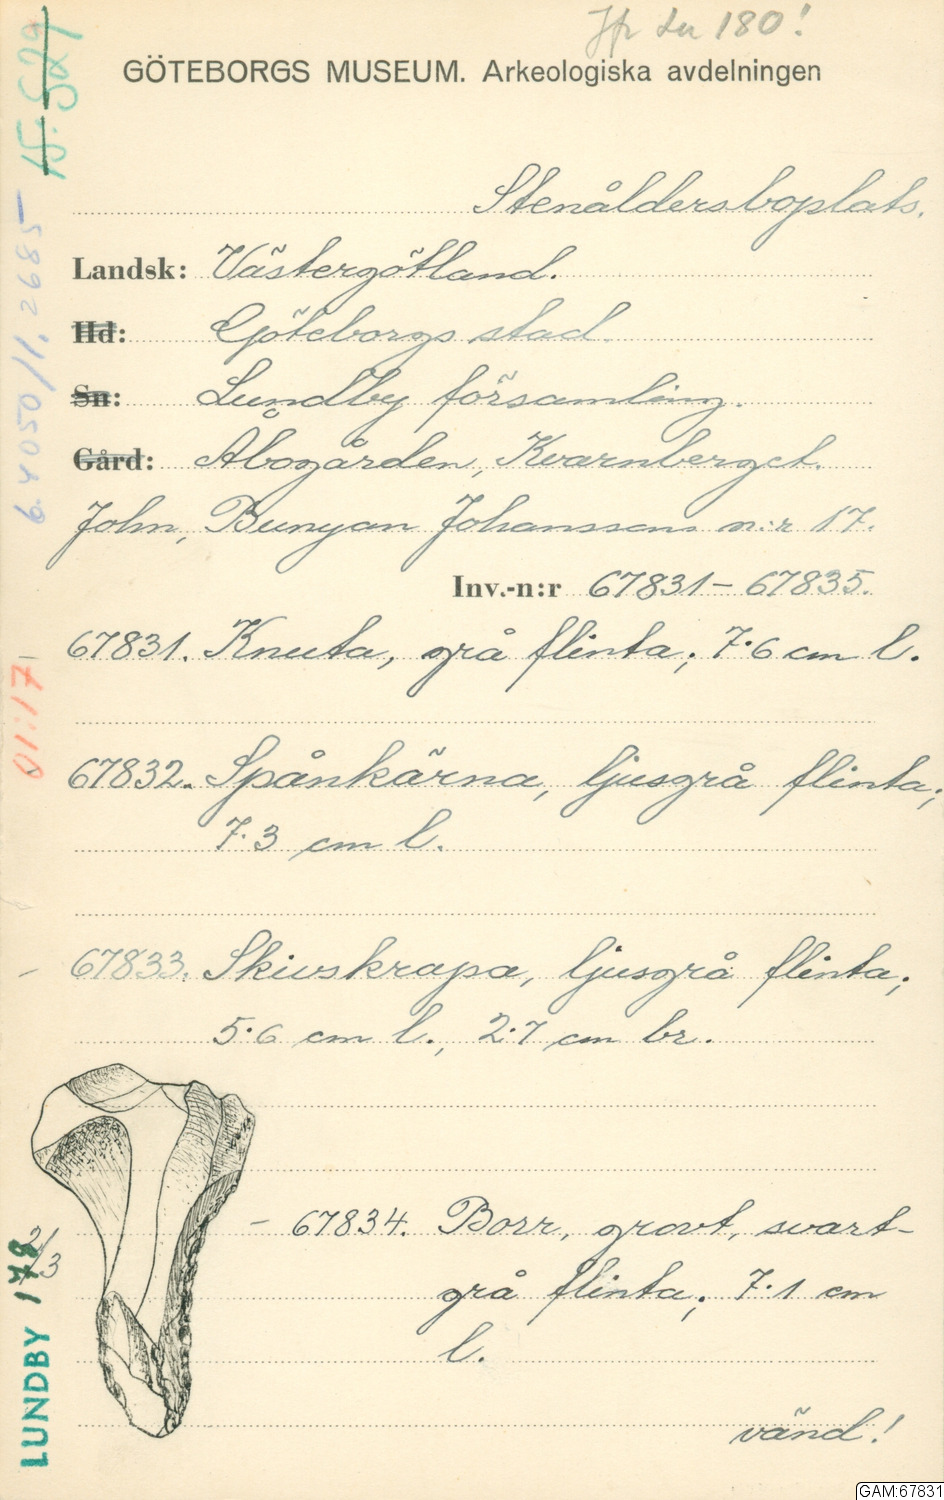 Jfr Lu 180!
GÖTEBORGS MUSEUM. Arkeologiska avdelningen
Stenåldersboplats.
Landsk: Västergötland.
Hd: Göteborgs stad.
Sn: Lundby församling.
Gård: Åbogården, Kvarnberget.
John, Bunyan Johanssons n:r 17.
Inv.-n:r 67831-67835.
67831. Knuta, grå flinta; 7.6 cm l.
67832. Spånkärna, ljusgrå flinta;
7.3 cm l.
- 67833. Skivskrapa, ljusgrå flinta;
5.6 cm l., 2.7 cm br.
- 67834. Borr, grovt, svart-
grå flinta; 7.1 cm
l.
vänd!
2/3
LUNDBY 178
01:17
6.4050/1.2685
15:529
GAM:67831